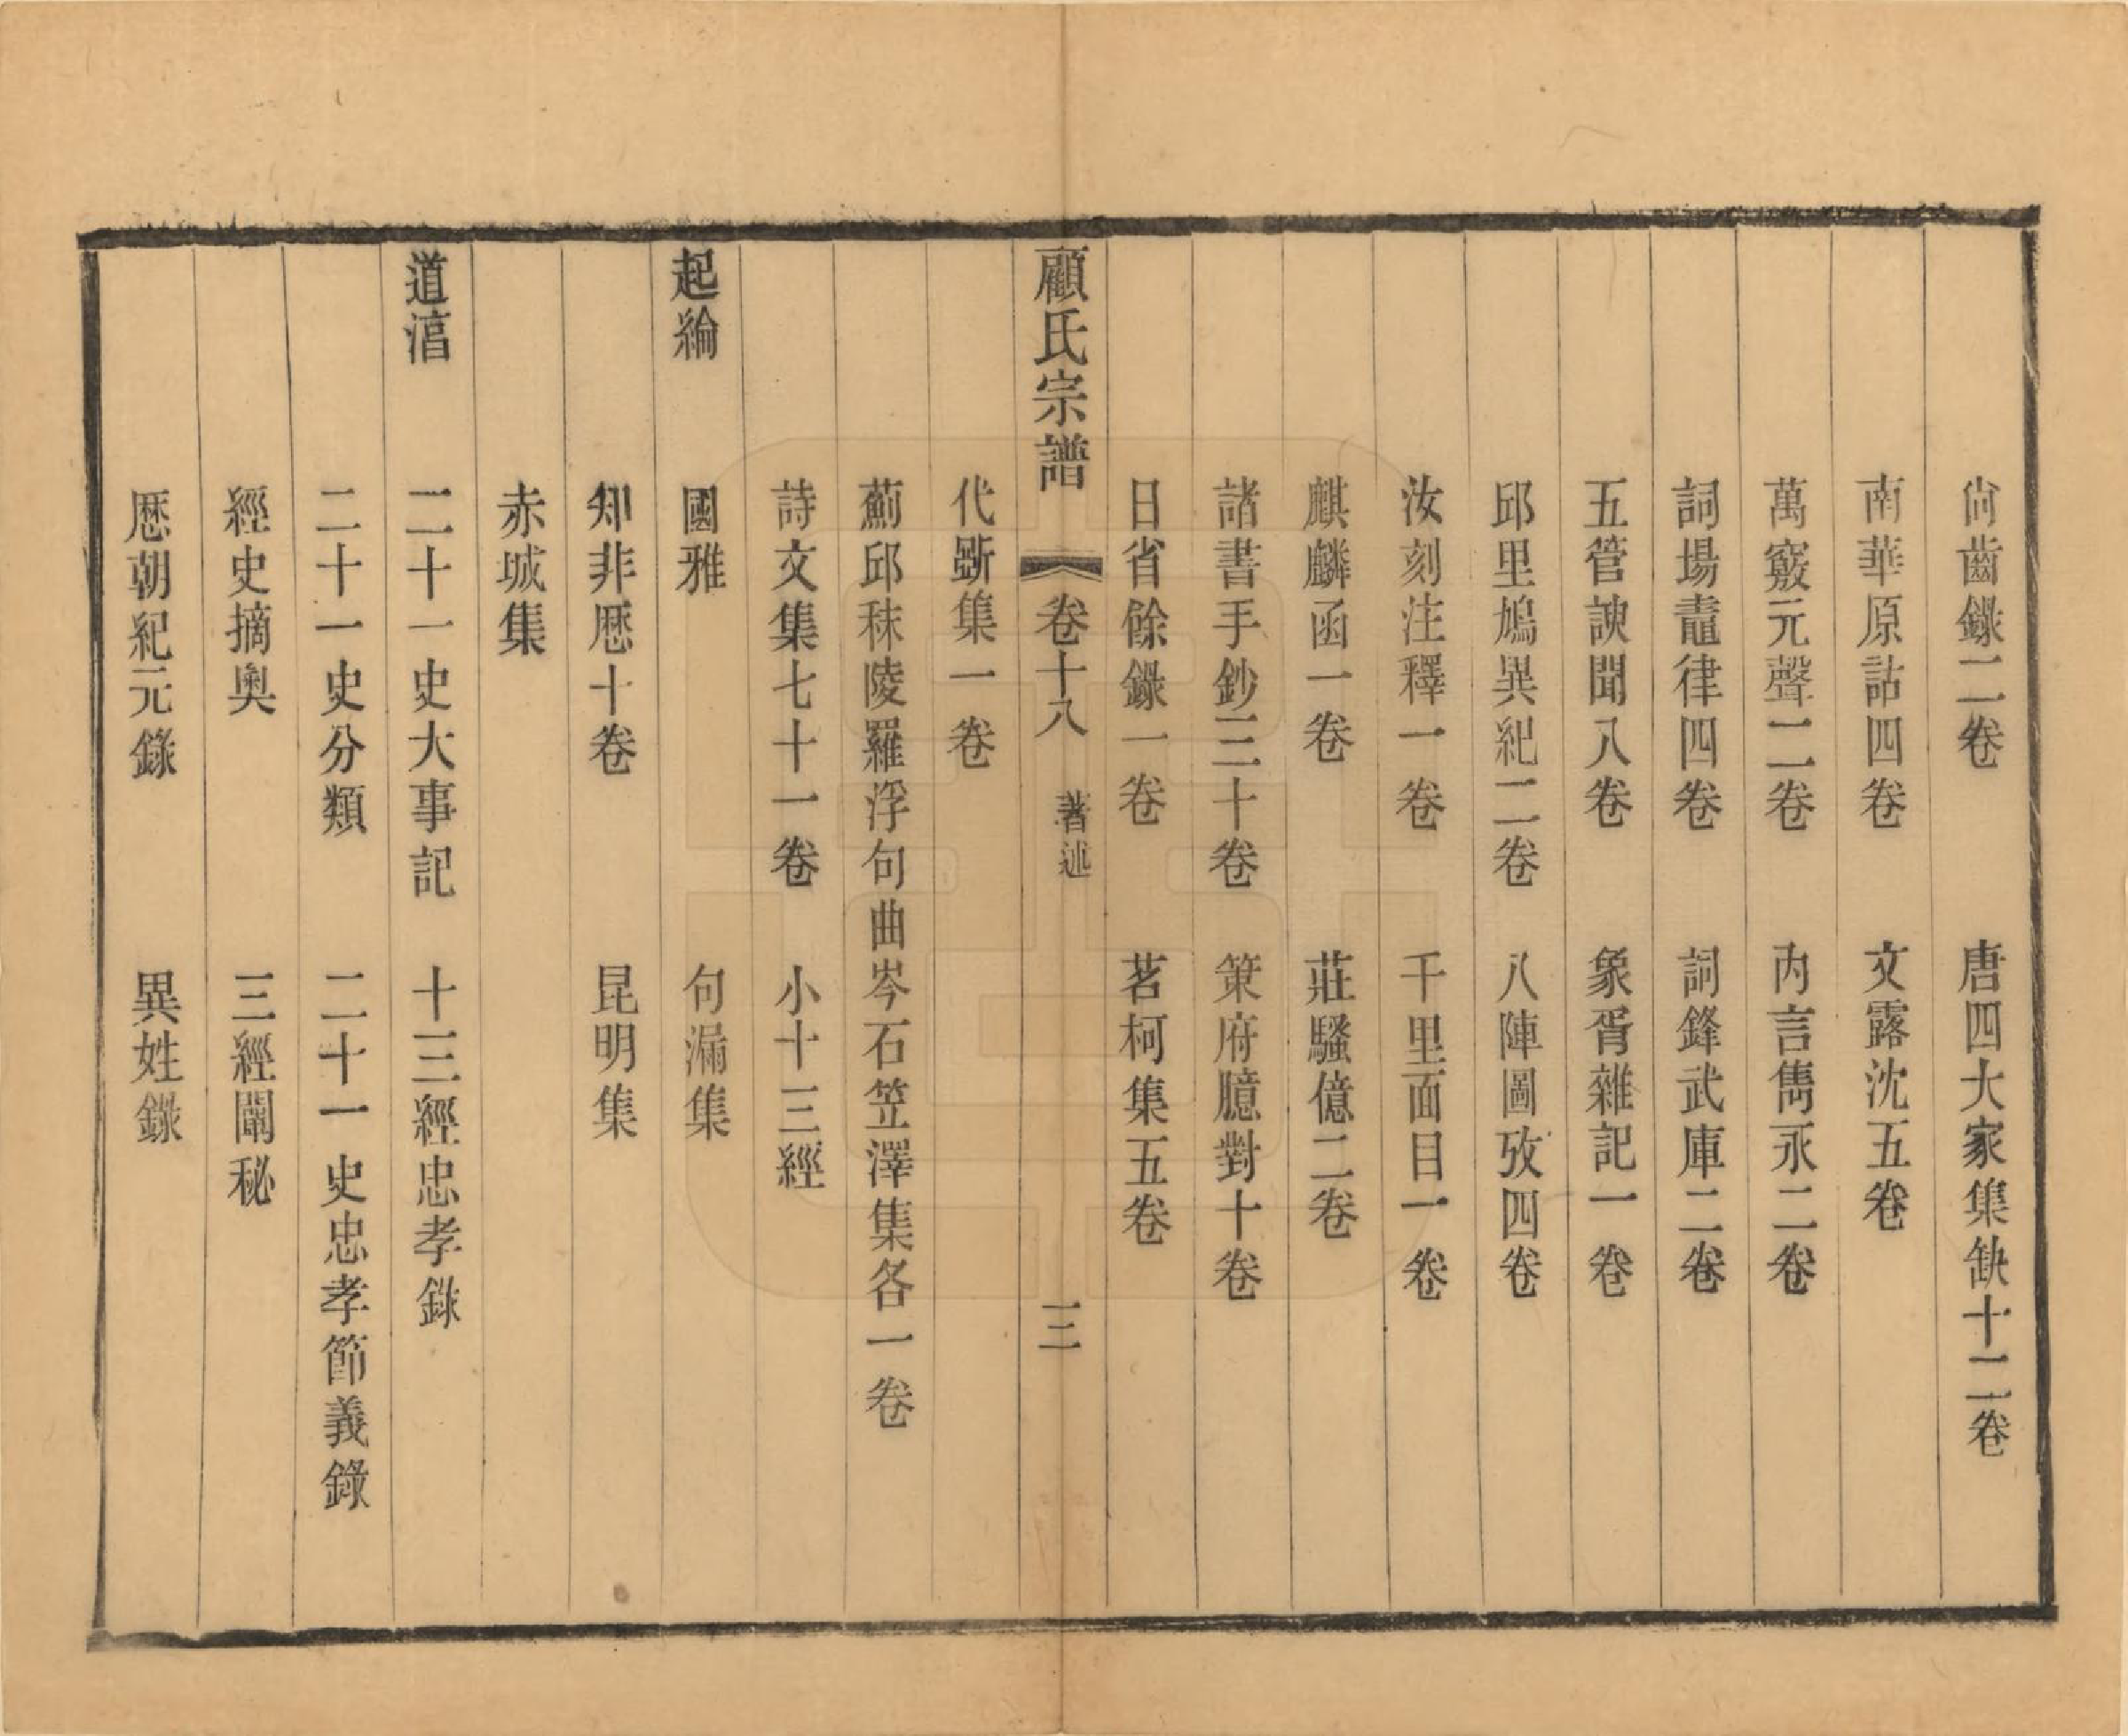 尙齒錄二卷　唐四大家集缺十二卷
南華原詁四卷　文露沈五卷
萬竅元聲二卷　內言雋永二卷
詞場𪓰律四卷　詞鋒武庫二卷
五管諛聞八卷　象胥雜記一卷
邱里鳩異紀二卷　八陣圖攷四卷
汝刻注釋一卷　千里面目一卷
麒麟函一卷　莊騷億二卷
諸書手鈔三十卷　策府臆對十卷
日省餘錄一卷　茗柯集五卷
顧氏宗譜　卷十八　著述　三
代斲集一卷
薊邱秣陵羅浮句曲岑石笠澤集各一卷
詩文集七十一卷　小十三經
起綸　國雅　句漏集
知非曆十卷　昆明集
赤城集
道㴠　二十一史大事記　十三經忠孝錄
二十一史分類　二十一史忠孝節義錄
經史摘奧　三經闡秘
歷朝紀元錄　異姓錄